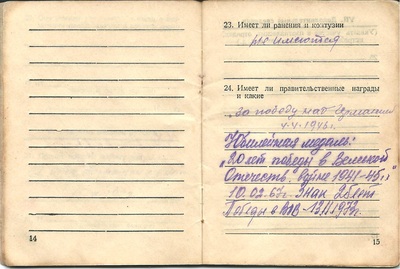 23. Имеет ли ранения и контузии
не имеются
24. Имеет ли правительственные награды
и какие
за победу над Германией
1946г.
Юбилейная медаль:
„20 лет победы в Великой
Отечеств. Войне 1941-45гг"
10.02.67г. Знак 25 лет
Победы в ВОВ
14
15